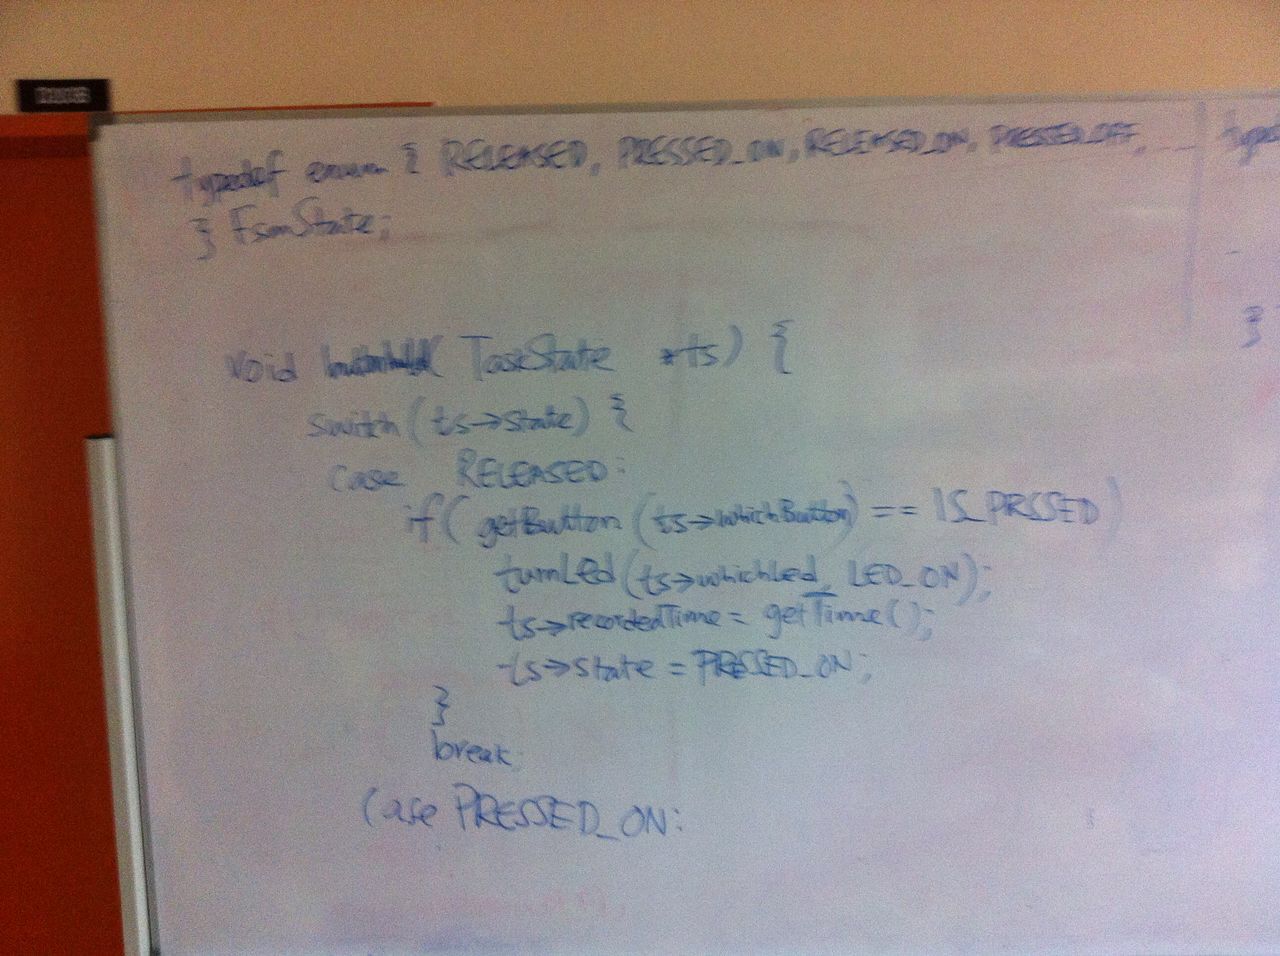 typedef enum { RELEASED, PRESSED_ON, RELEASED_ON, PRESSED_OFF, ...
} FsmState;
void ( TaskState *ts) {
switch (ts->state) {
case RELEASED:
if( getButton (ts->whichButton) == IS_PRSSED)
turnLed (ts->whichLed, LED_ON);
ts->recordedTime = getTime();
ts->state = PRESSED_ON;
}
break;
case PRESSED_ON:
typed
}